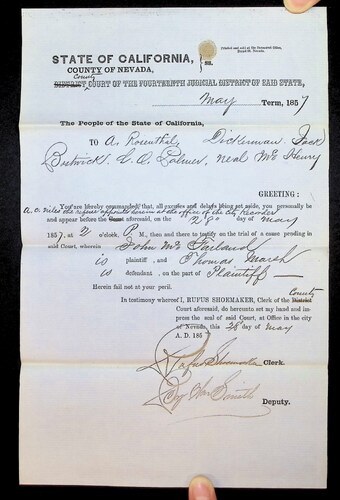 Printed and sold at the Democrat Office, Broad-St. Nevada.
STATE OF CALIFORNIA, } ss.
COUNTY OF NEVADA,
County
DISTRICT COURT OF THE FOURTEENTH JUDICIAL DISTRICT OF SAID STATE,
May Term, 1857
The People of the State of California,
TO A. Rosenthal, Dickerman, Jack
Bostwick, C. C. Palmer, Neal McHenry
GREETING:
You are hereby commanded, that all excuses and delays being set aside, you personally be
at the office of the City Recorder
and appear before the Court aforesaid, on the 28th day of May
1857, at 2 o'clock, P. M., then and there to testify on the trial of a case pending in
said Court, wherein John McFarland
is plaintiff, and Thomas Marsh
is defendant, on the part of Plaintiff
Herein fail not at your peril.
County
In testimony whereof I, RUFUS SHOEMAKER, Clerk of the District
Court aforesaid, do hereunto set my hand and im-
press the seal of said Court, at Office in the city
of Nevada, this 28 day of May
A. D. 185
Rufus Shoemaker Clerk.
By Wm Smith Deputy.